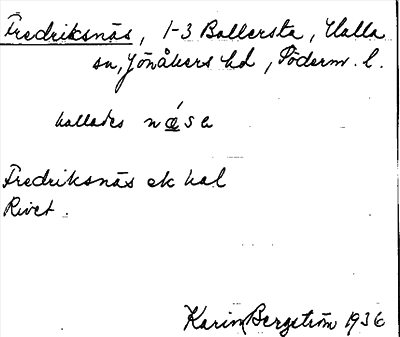 Fredriksnäs, 1-3 Ballersta, Halla
sn, Jönåkers hd, Söderm. l.
kallades nǽsa
Fredriksnäs ek hal
Rivet.
Karin Bergström 1936